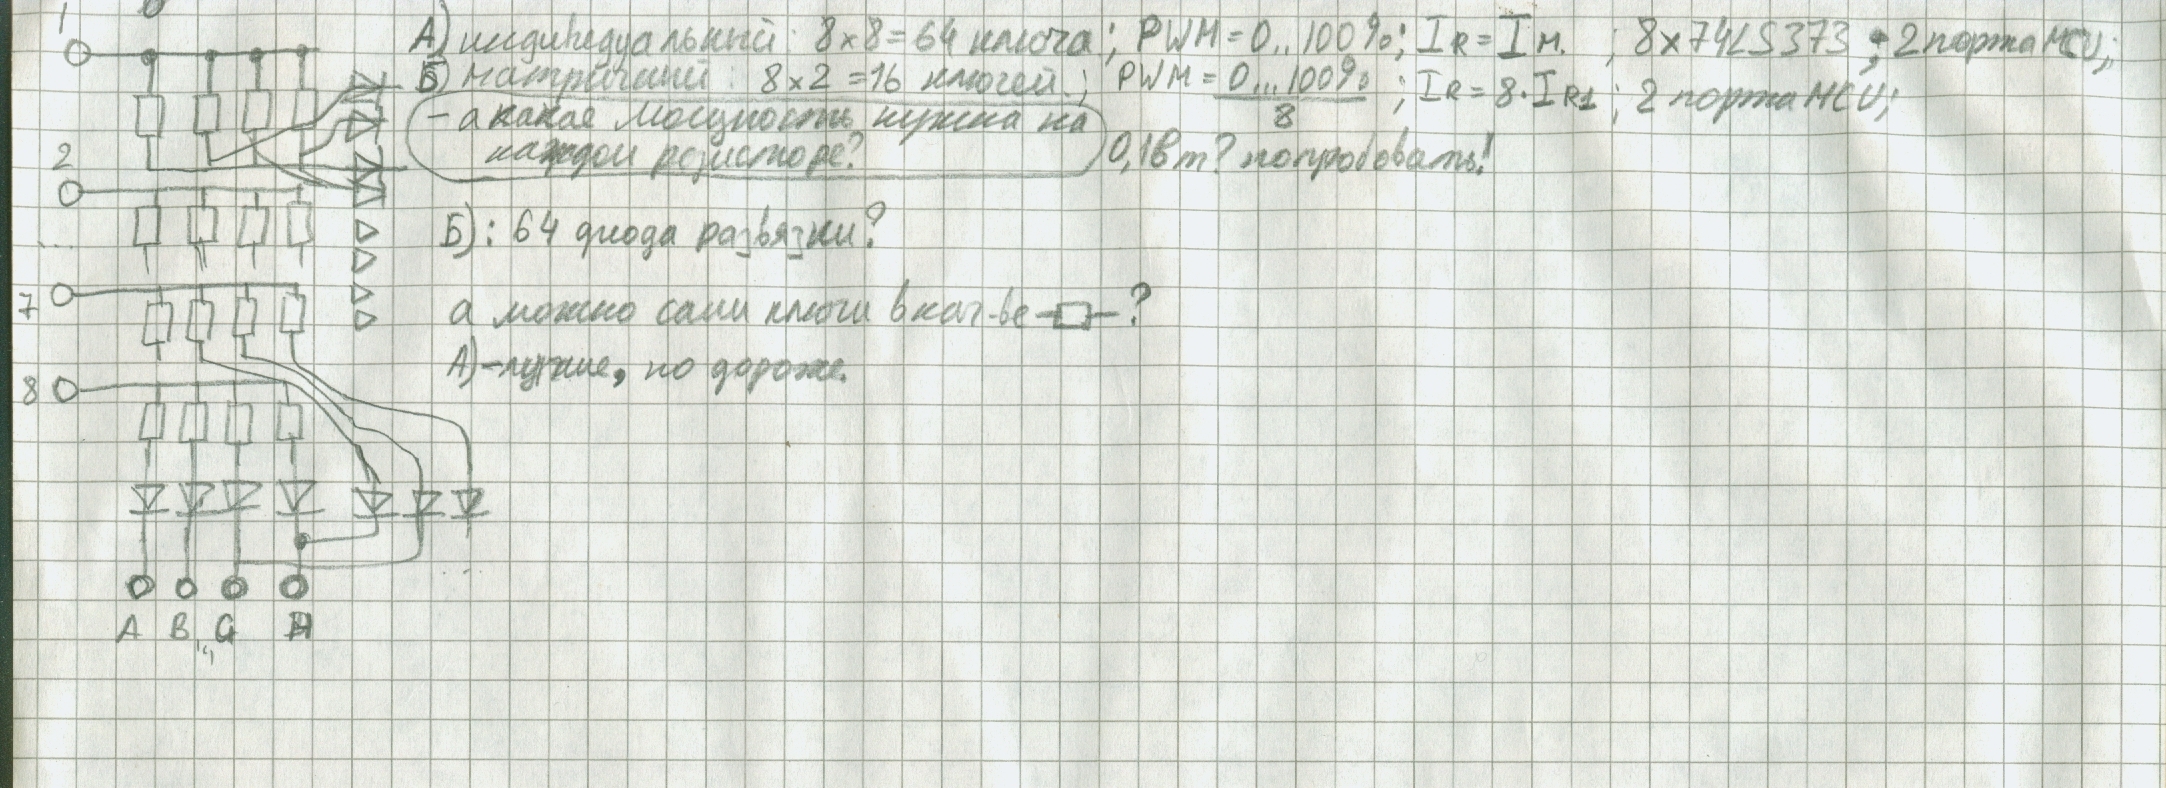 1
А) индивидуальный: 8×8=64 ключа; PWM=0..100%; IR=IM.; 8×74LS373; 2 порта MCU;
Б) матричный: 8×2=16 ключей.; PWM=0...100%/8; IR=8·IR1; 2 порта MCU;
- а какая мощность нужна на
каждом резисторе? 0,1Вт? попробовать!
2
Б): 64 диода развязки?
...
7
а можно сами ключи в кач-ве ?
А)-лучше, но дороже.
8
A B G H